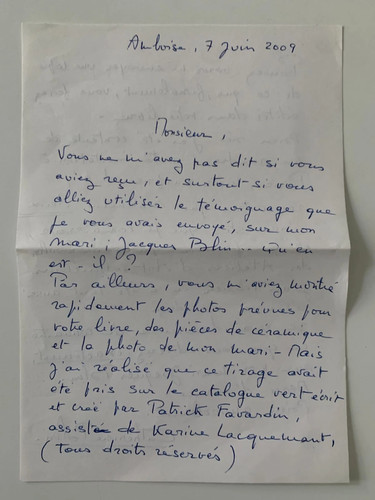 Amboise, 7 Juin 2009
Monsieur,
Vous ne m'avez pas dit si vous
aviez reçu, et surtout si vous
alliez utiliser le témoignage que
je vous avais envoyé, sur mon
mari, Jacques Blin... Qu'en
est-il ?
Par ailleurs, vous m'aviez montré
rapidement les photos prévues pour
votre livre, des pièces de céramique
et la photo de mon mari - Mais
j'ai réalisé que ce tirage avait
été pris sur le catalogue vert écrit
et créé par Patrick Favardin,
assisté de Karine Lacquemant,
(Tous droits réservés)